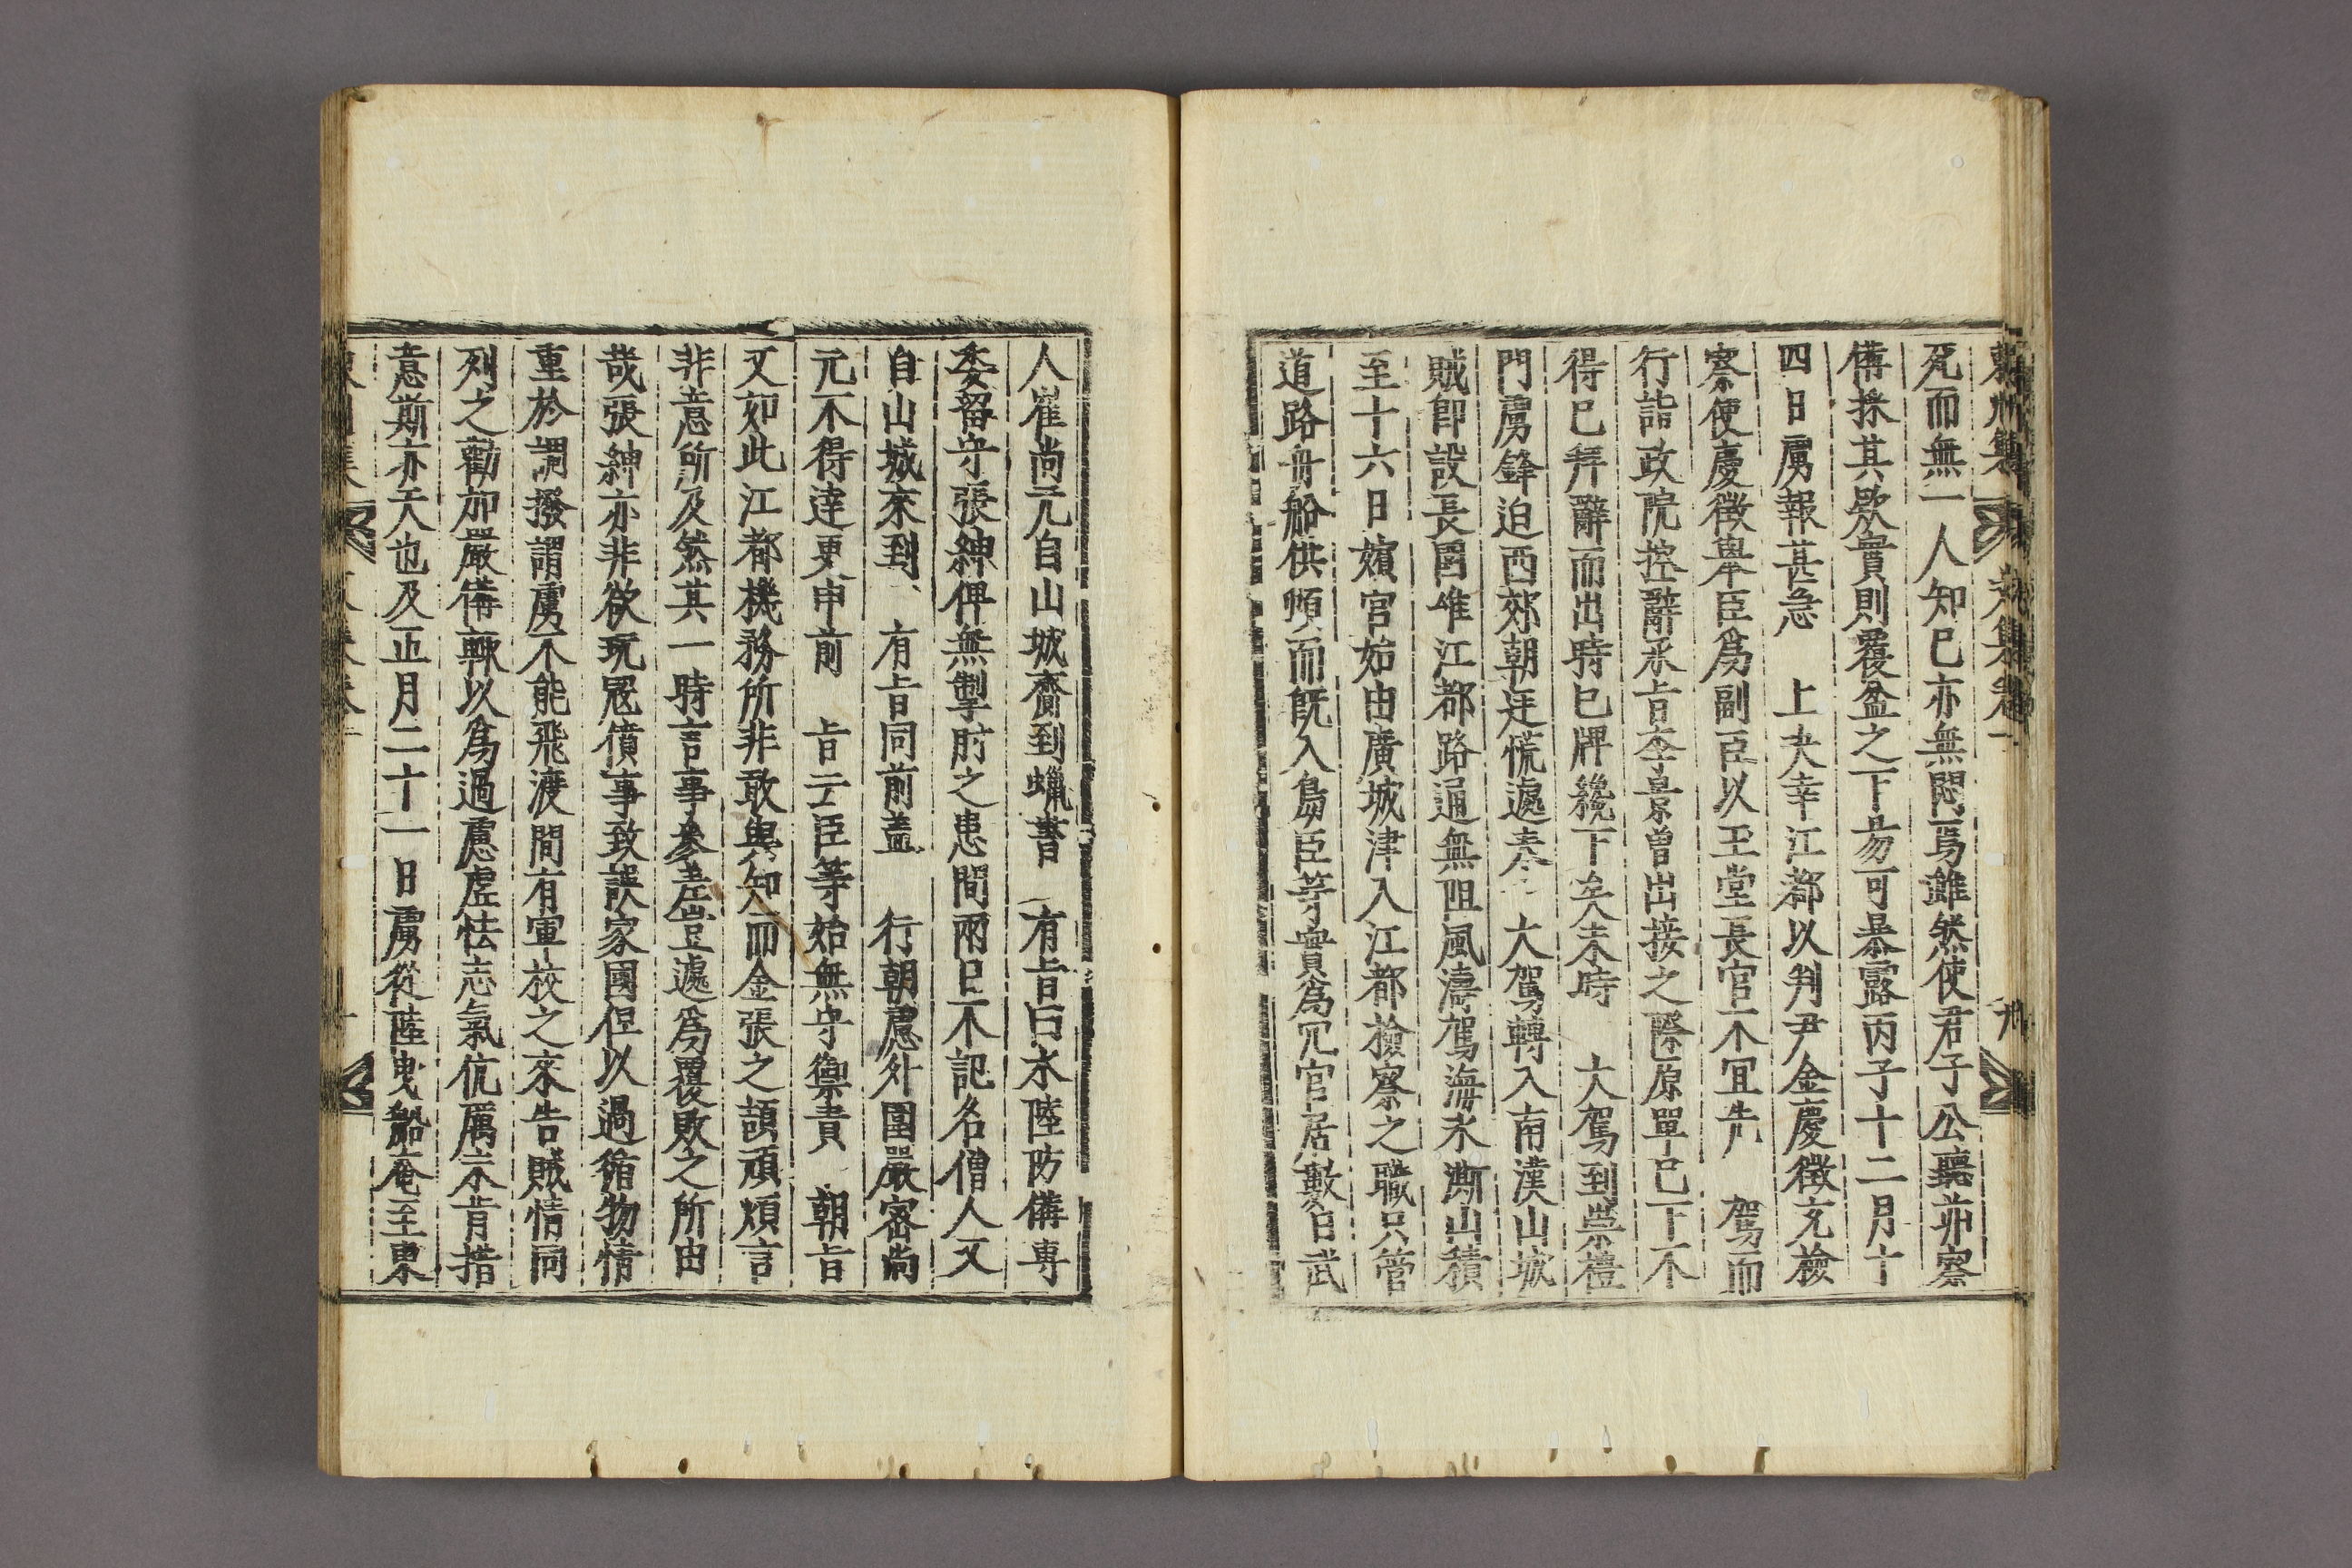 死而無一人知已亦無悶焉雖然使君子公聽並察
備採其歐實則覆盆之下庶可暴露丙子十二月十
四日虜報甚急 上夬幸江都以判尹金慶徵充檢
察使慶徵擧臣爲副臣以玉堂長官不冝先 駕而
行詣政院控辭承旨李景曾出接之際原單已下不
得已拜辭而出時已牌纔下矣未時 大駕到崇禮
門虜鋒迫西郊朝廷慌遽奏 大駕轉入南漢山城
賊卽設長圍唯江都路通無阻風濤駕海氷澌山積
至十六日嬪宮始由廣城津入江都檢察之職只管
道路舟船供頓而旣入島臣等實爲冗官居數日武
人崔尙元自山城齎到蠟書 有旨曰水陸防備專
委留守張紳俾無掣肘之患間兩日不記名僧人又
自山城來到 有旨同前盖 行朝慮外圍嚴密尙
元不得達更申前 旨云臣等始無守禦責 朝旨
又如此江都機務所非敢與知而金張之頡頑煩言
非意所及然其一時言事參差豈遽爲覆敗之所由
哉張紳亦非欲玩寇僨事致誤家國但以過循物情
重於調撥謂虜不能飛渡間有軍校之來告賊情同
列之勸加嚴備輒以爲過慮虛怯志氣伉厲不肯措
意斯亦天也及正月二十一日虜從陸曳船庵至東